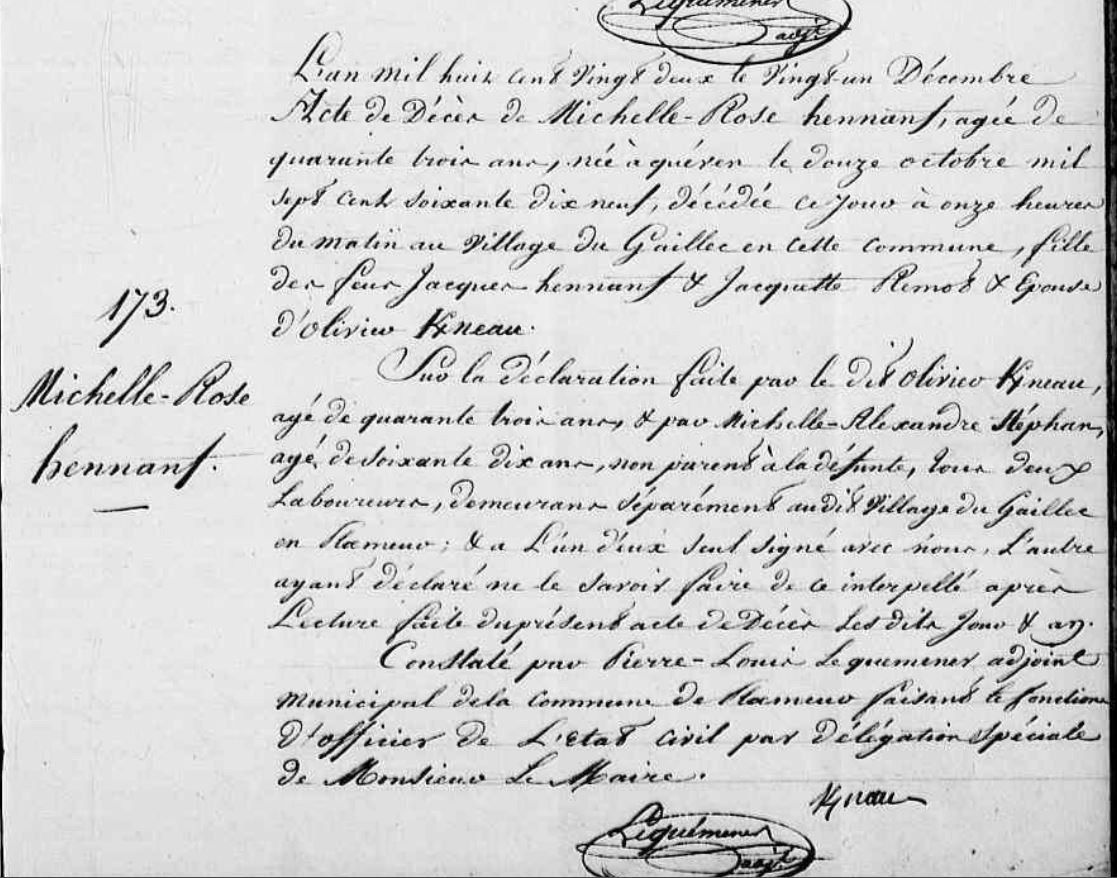 Lequémener
adjt
L'an mil huit cent vingt deux le vingt un Décembre
Acte de Décès de Michelle-Rose hennanf, agée de
quarante trois ans, née à quéven le douze octobre mil
sept cent soixante dix neuf, décédée ce jour à onze heures
du matin au village du Gaillec en cette commune, fille
des feus Jacques hennanf & Jacquette Remot & Epouse
d'olivier Kneau.
173.
Michelle-Rose
hennanf.
Sur la déclaration faite par le dit olivier Kneau,
agé de quarante trois ans, & par Michelle-Alexandre Stéphan,
agé de soixante dix ans, non parent à la défunte, tous deux
Laboureurs, demeurans séparément audit village du Gaillec
en Plœmeur; & a L'un d'eux seul signé avec nous, L'autre
ayant déclaré ne le savoir faire de ce interpellé après
Lecture faite du présent acte de Décès les dits Jour & an.
Constaté par Pierre-Louis Lequemener adjoint
municipal de la commune de Plœmeur faisant le fonctions
d'officier de L'Etat civil par délégation spéciale
de Monsieur Le Maire.
Kneau
Lequémener
adjt